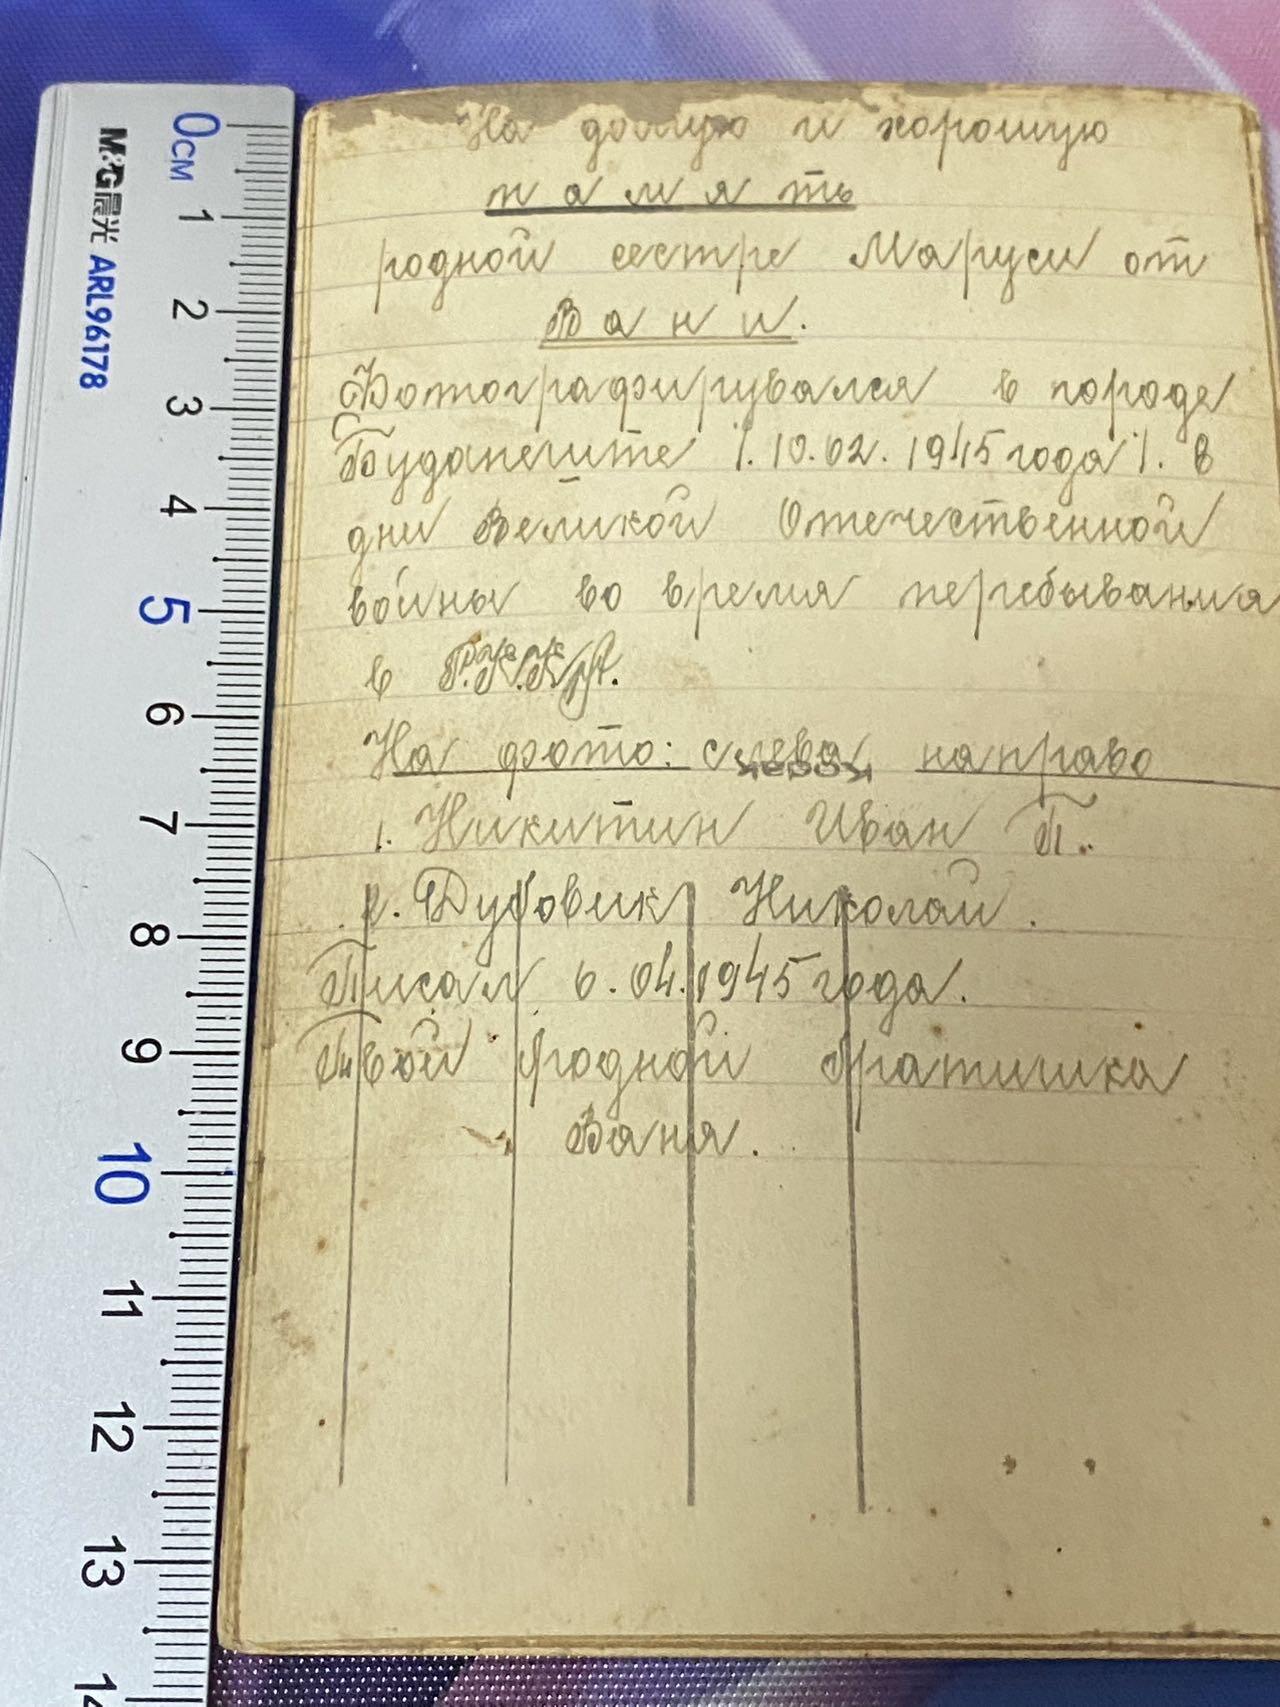 0 CM
M&G 晨光 ARL96178
1
2
3
4
5
6
7
8
9
10
11
12
13
14
На долгую и хорошую
память
родной сестре Маруси от
Вани.
Фотографирувался в городе
Будапеште /.10.02.1945 года/. в
дни Великой Отечественной
войны во времяперебывания
в Р.К.К.А.
На фото: слева направо
1. Никитин Иван П.
2. Дубовик Николай.
Писал 6.04.1945 года.
Твой родной братишка
Ваня.